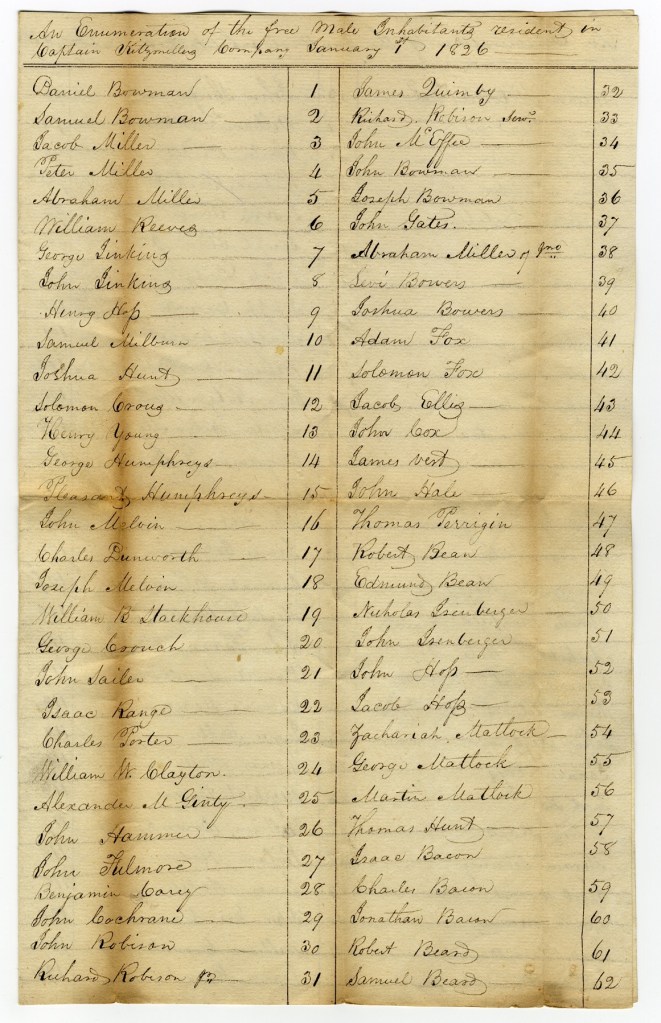 An Enumeration of the free Male Inhabitants resident in
Captain Kitzmillers Company January 1st 1826
Daniel Bowman 1
Samuel Bowman 2
Jacob Miller 3
Peter Miller 4
Abraham Miller 5
William Reeves 6
George Jinking 7
John Jinking 8
Henry Hoss 9
Samuel Milburn 10
Joshua Hunt 11
Solomon Croug 12
Henry Young 13
George Humphreys 14
Pleasant Humphreys 15
John Melvin 16
Charles Dunworth 17
Joseph Melvin 18
William B Stackhouse 19
George Crouch 20
John Sailer 21
Isaac Range 22
Charles Porter 23
William W. Clayton. 24
Alexander M Ginty. 25
John Hammer 26
John Fulmore 27
Benjamin Carey 28
John Cochrane 29
John Robison 30
Richard Robison Jr 31
James Quimby 32
Richard Robison Senr 33
John McEffee 34
John Bowman 35
Joseph Bowman 36
John Gates. 37
Abraham Miller of Jno 38
Levi Bowers 39
Joshua Bowers 40
Adam Fox 41
Solomon Fox 42
Jacob Ellis 43
John Cox 44
James Vest 45
John Hale 46
Thomas Perrigin 47
Robert Bean 48
Edmund Bean 49
Nicholas Isenberger 50
John Isenberger 51
John Hoss 52
Jacob Hoss 53
Zachariah Matlock 54
George Matlock 55
Martin Matlock 56
Thomas Hunt 57
Isaac Bacon 58
Charles Bacon 59
Jonathan Bacon 60
Robert Beard 61
Samuel Beard 62